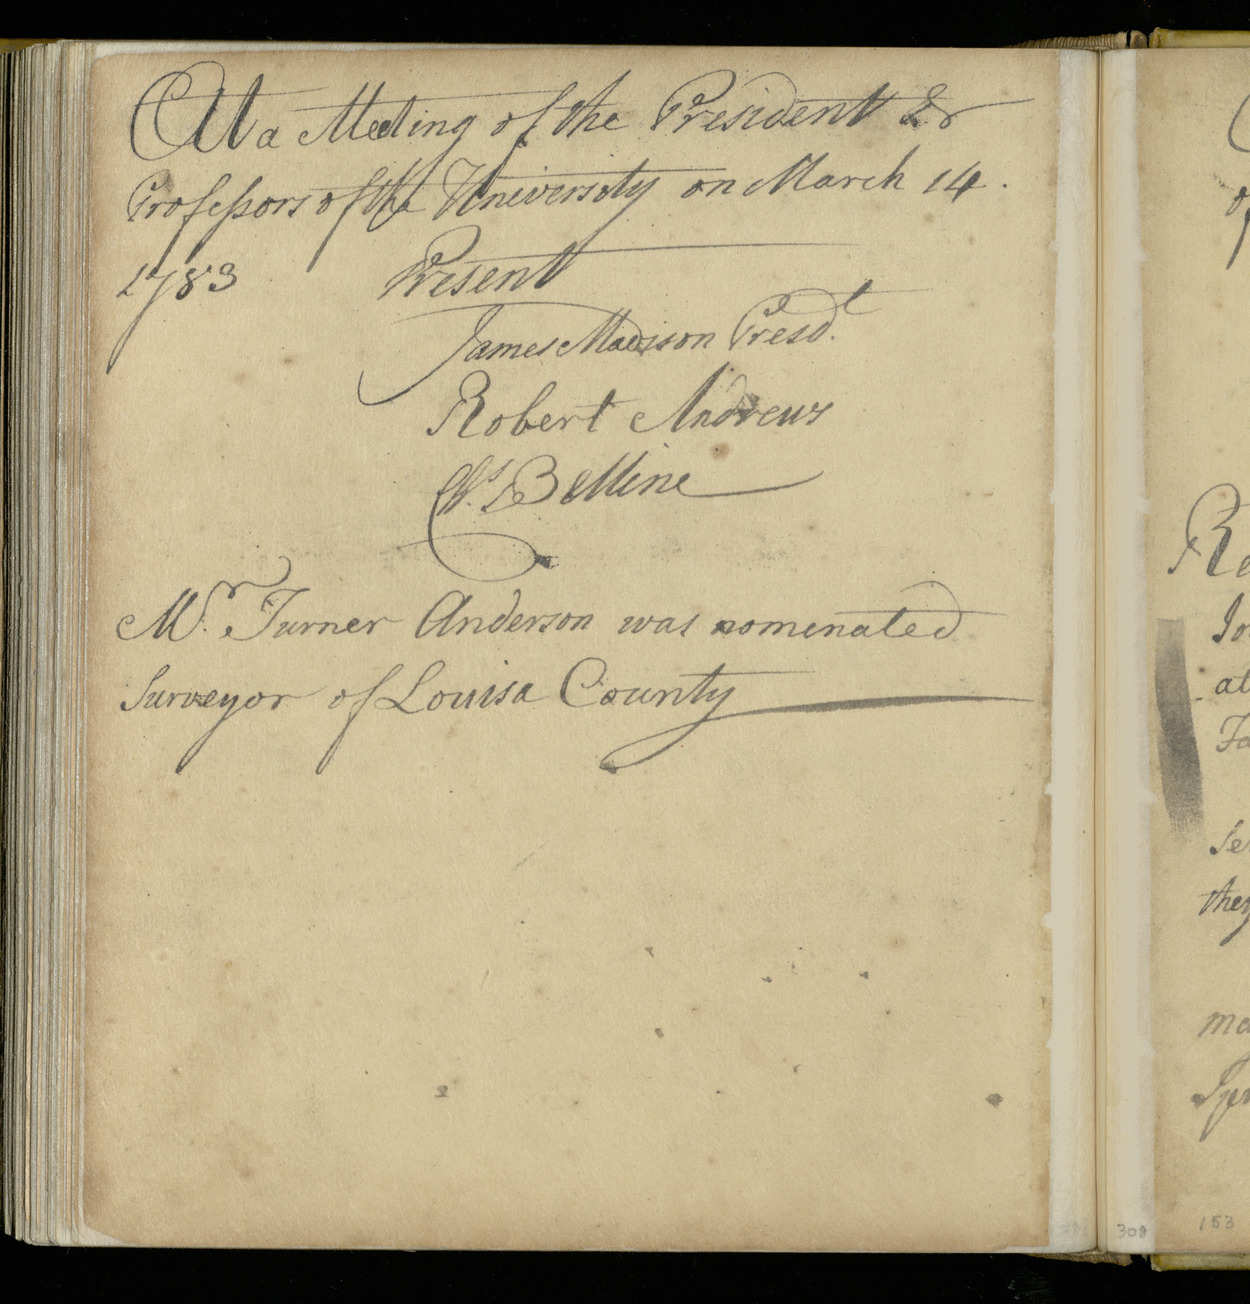 At a Meeting of the President &
Professors of the University on March 14.
1783 Present
James Madison Presdt.
Robert Andrews
Chs. Belline
Mr. Turner Anderson was nomenated
Surveyor of Louisa County
Re
al
Fa
Se
they
ma
308
153